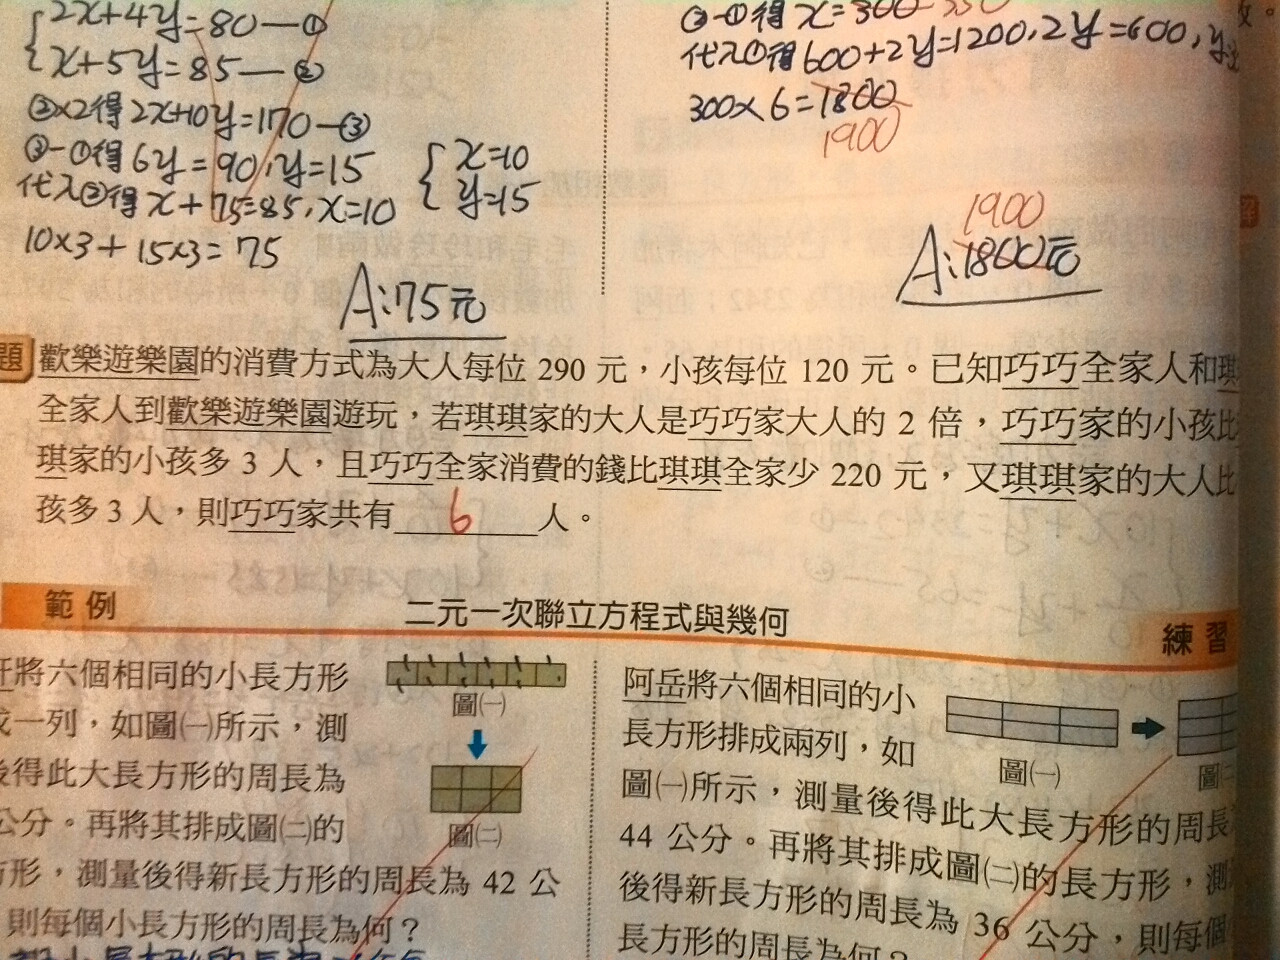 2x+4y=80—①
x+5y=85—②
②×2得2x+10y=170—③
③-①得6y=90,y=15
代入②得x+75=85,x=10
x=10
y=15
10×3+15×3=75
A:75元
③-①得x=300
代入①得600+2y=1200,2y=600,
300×6=1800
1900
1900
A:1800元
題 歡樂遊樂園的消費方式為大人每位 290 元，小孩每位 120 元。已知巧巧全家人和琪
全家人到歡樂遊樂園遊玩，若琪琪家的大人是巧巧家大人的 2 倍，巧巧家的小孩比
琪家的小孩多 3 人，且巧巧全家消費的錢比琪琪全家少 220 元，又琪琪家的大人比
孩多 3 人，則巧巧家共有 6 人。
範例 二元一次聯立方程式與幾何 練習
將六個相同的小長方形
成一列，如圖㈠所示，測
後得此大長方形的周長為
公分。再將其排成圖㈡的
方形，測量後得新長方形的周長為 42 公
則每個小長方形的周長為何？
圖㈠
圖㈡
阿岳將六個相同的小
長方形排成兩列，如
圖㈠所示，測量後得此大長方形的周長
44 公分。再將其排成圖㈡的長方形，測
後得新長方形的周長為 36 公分，則每個
長方形的周長為何？
圖㈠
圖